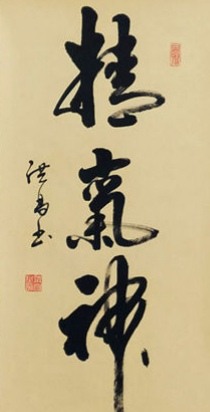 精氣神
洪昌书